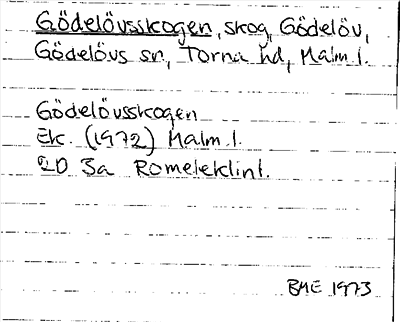 Gödelövsskogen, skog, Gödelöv,
Gödelövs sn, Torna hd, Malm. l.
Gödelövsskogen
Ek. (1972) Malm. l.
2D 3a Romeleklint.
BME 1973